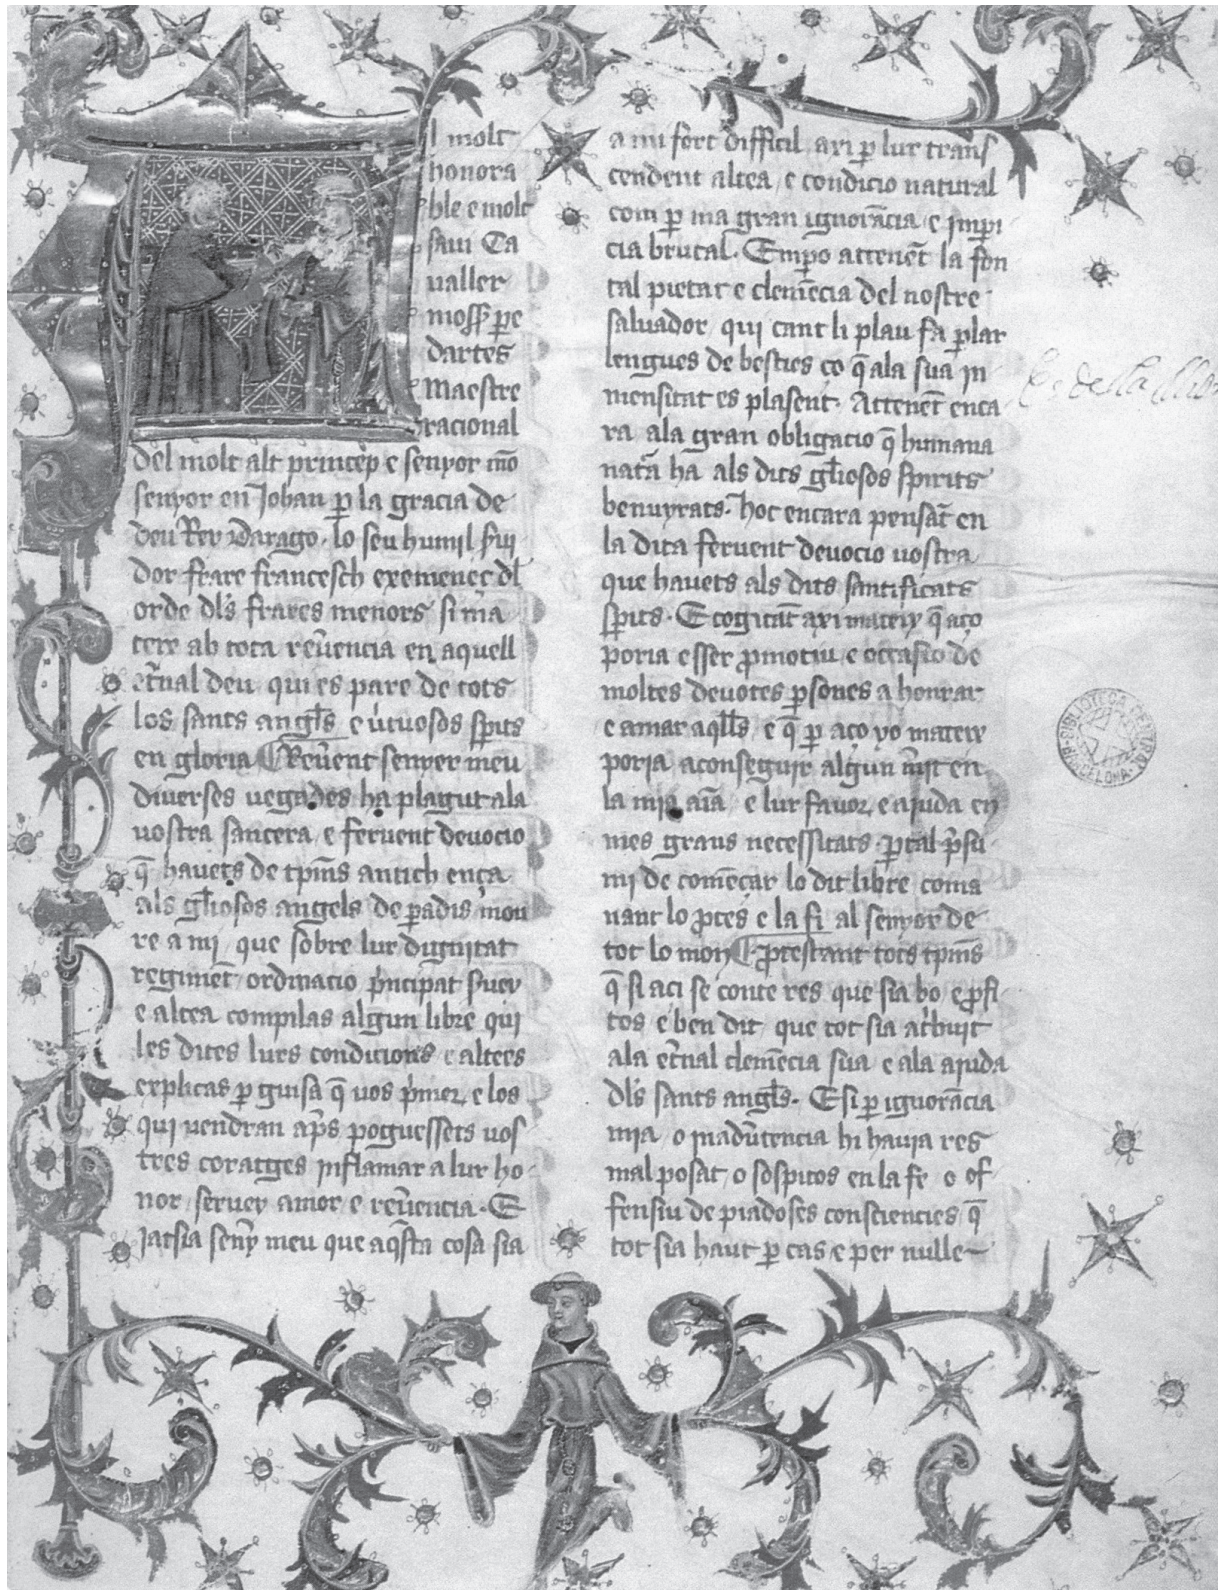 l molt
honora
ble e molt
saui Ca
ualler
moss̃ ꝑe
dartes
Maestre
racional
del molt alt princep e senyor mõ
senyor en Johan ꝑ la gracia de
deu Rey Darago. lo seu humil s̃ui
dor frare francesch exemeneç dl̃
orde dl̃s frares menors si ma
teix ab tota reũencia en aquell
et̃nal deu qui es pare de tots
los sants angl̃s e ũtuosos sp̃its
en gloria ¶ Reũent senyer meu
diuerses vegades ha plagut ala
vostra sancera e feruent deuocio
q̃ hauets de tp̃ms antich ença
als gl̃iosos angels de ꝑadis mou
re a mi que sobre lur dignitat
regimẽt ordinacio p̃ncipat s̃uey
e altea compilas algun libre qui
les dites lurs condicions e altees
explicas ꝑ guisa q̃ vos p̃mer e los
qui vendran ap̃s poguessets vos
tres coratges inflamar a lur ho
nor seruey amor e reũencia. E
Jatsia seny̾ meu que aq̃sta cosa sia
a mi fort difficil axi ꝑ lur trans
cendent altea e condicio natural
com ꝑ ma gran ignorãcia e Impi
cia brutal. Emꝑo attenẽt la fon
tal pietat e clemẽcia del nostre
saluador qui cant li plau fa ꝑlar
lengues de besties ço q̃ ala sua in
mensitat es plasent. Attenẽt enca
ra ala gran obligacio q̃ humana
nat̃a ha als dits gl̃iosos spirits
benuyrats. hoc encara pensãt en
la dita feruent deuocio vostra
que hauets als dits santificats
sp̃its. E cogitãt axi mateix q̃ aço
poria esser ꝓmotiu e occasio de
moltes deuotes ꝑsones a honrar
e amar aq̃lls e q̃ ꝑ aço yo mateix
poria aconseguir algun m̃it en
la mia aĩa e lur fauor e aiuda en
mes grans necessitats. ꝑtal p̃su
mi de comẽçar lo dit libre coma
nant lo ꝓces e la fi al senyor de
tot lo mon ¶ ꝓtestant tots tp̃ms
q̃ si aci se conte res que sia bo e ꝓfi
tos e ben dit que tot sia at̃buit
ala et̃nal clemẽcia sua e ala aiuda
dl̃s sants angl̃s. E si ꝑ ignorãcia
mia o inadũtencia hi hauia res
mal posat o sospitos en la fe o of
fensiu de piadoses consciencies q̃
tot sia haut ꝑ cas e per nulle
BIBLIOTECA CENTRAL
BARCELONA